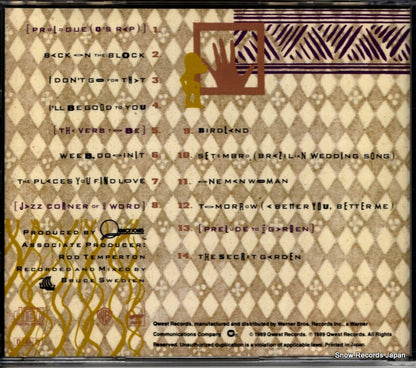 [PROLOGUE (Q'S RAP)] 1.
BACK ON THE BLOCK 2.
I DON'T GO FOR THAT 3.
I'LL BE GOOD TO YOU 4.
[THE VERB TO BE] 5.
WEE B. DOOINIT 6.
THE PLACES YOU FIND LOVE 7.
[JAZZ CORNER OF THE WORD] 8.
9. BIRDLAND
10. SETEMBRO (BRAZILIAN WEDDING SONG)
11. ONE MAN WOMAN
12. TOMORROW (A BETTER YOU, BETTER ME)
13. [PRELUDE TO THE GARDEN]
14. THE SECRET GARDEN
PRODUCED BY
ASSOCIATE PRODUCER:
ROD TEMPERTON
RECORDED AND MIXED BY
BRUCE SWEDIEN
Qwest Records, manufactured and distributed by Warner Bros. Records Inc., a Warner
Communications Company © 1989 Qwest Records. ℗ 1989 Qwest Records. All Rights
Reserved. Unauthorized duplication is a violation of applicable laws. Printed in Japan.
Snow Records Japan
www.snowrecords.jp